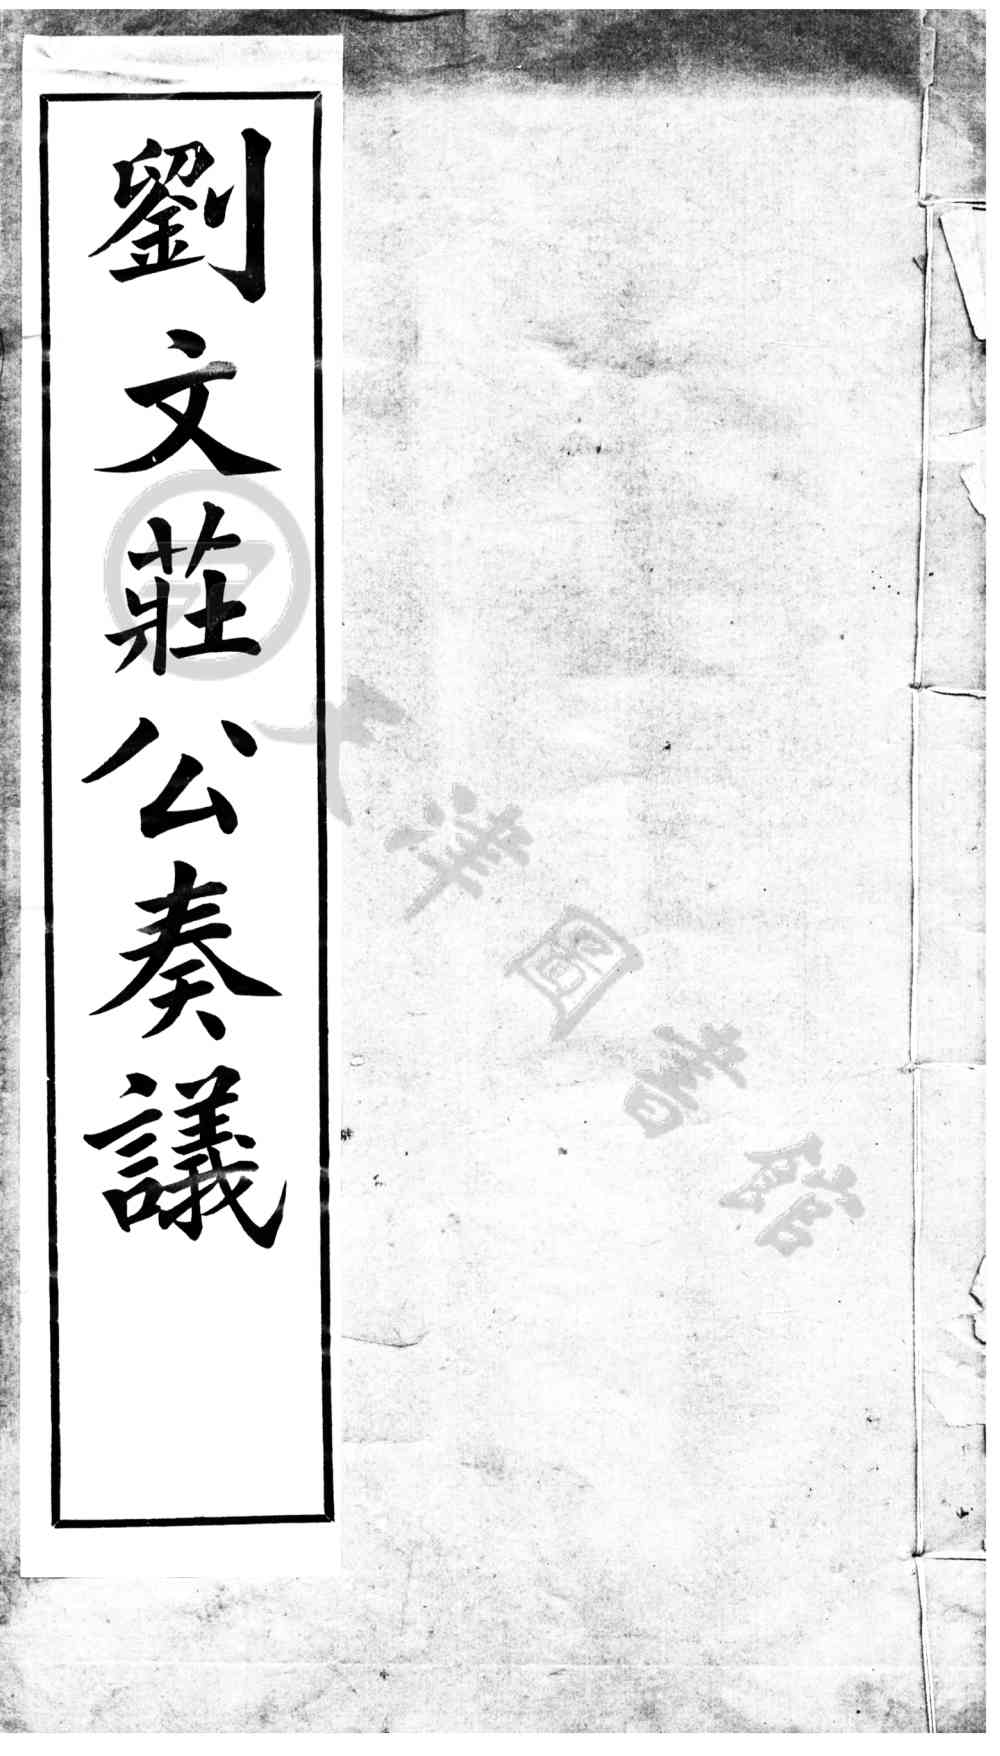 劉文莊公奏議
天津圖書館